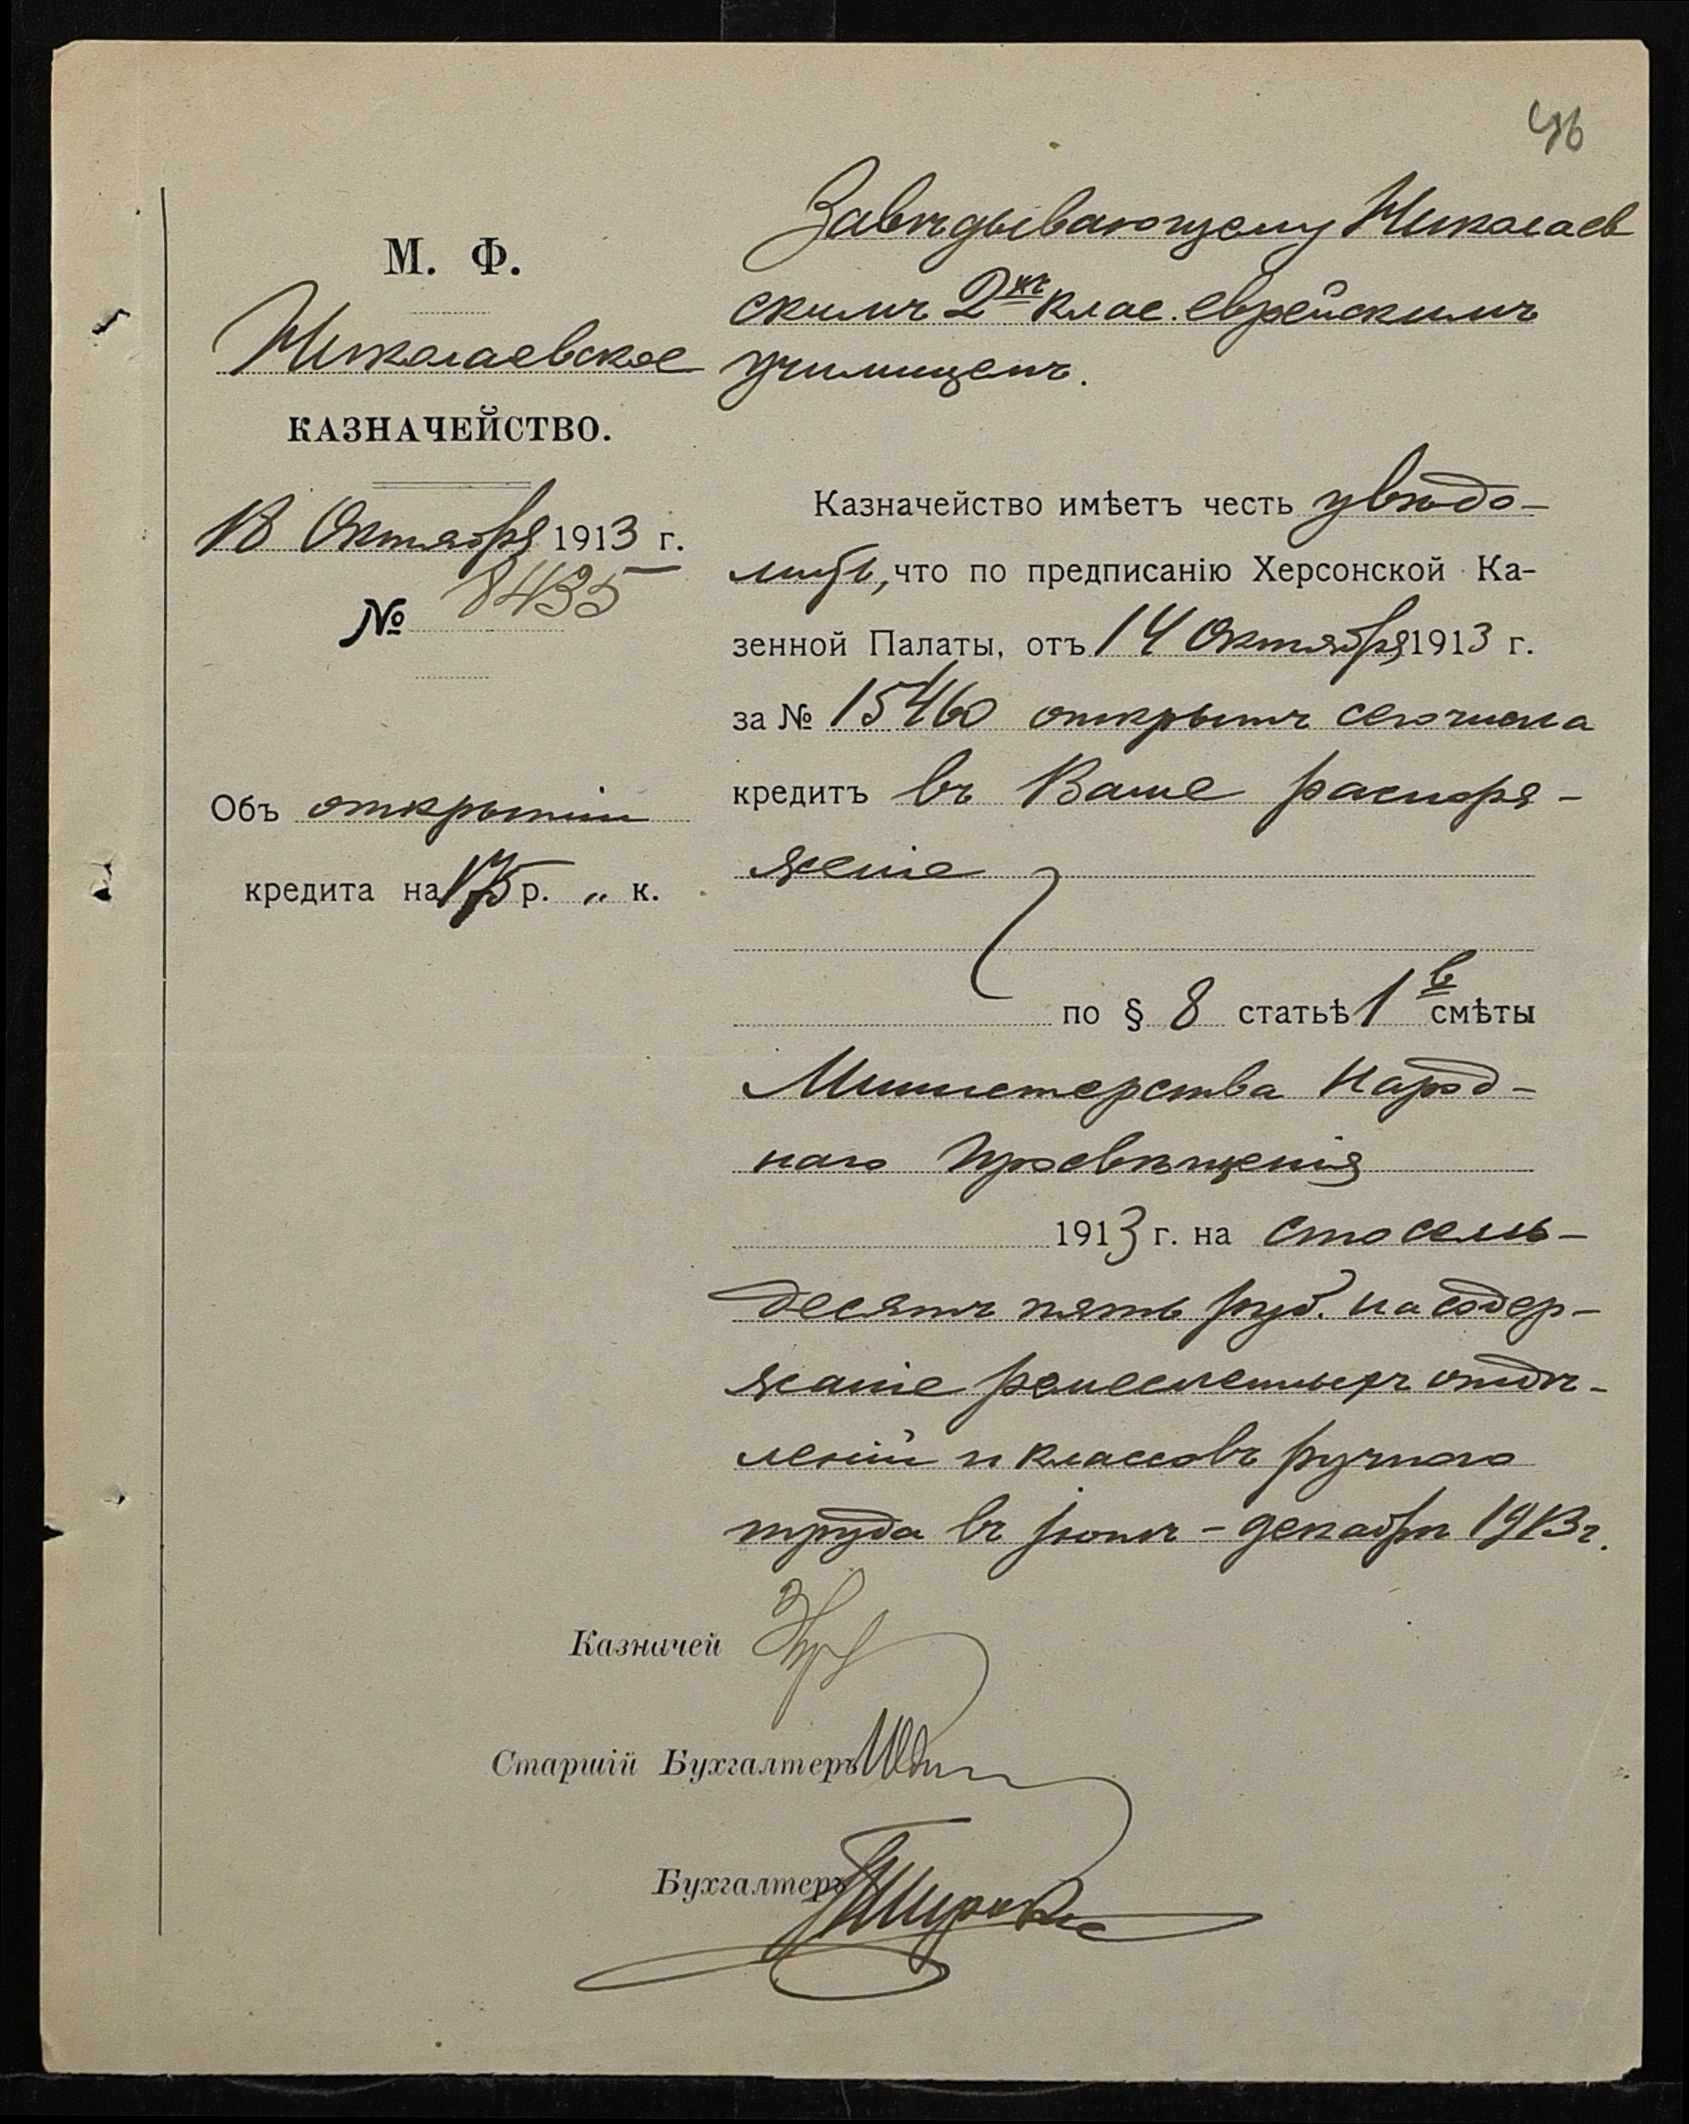 46
М. Ф.
Николаевское
КАЗНАЧЕЙСТВО.
18 Октября 1913 г.
№ 8435
Объ открытіи
кредита на 175 р. „ к.
Завѣдывающему Николаев
скимъ 2хъ клас. еврейскимъ
училищемъ.
Казначейство имѣетъ честь увѣдо-
мить, что по предписанію Херсонской Ка-
зенной Палаты, отъ 14 Октября 1913 г.
за № 15460 открытъ сего числа
кредитъ въ Ваше распоря-
женіе
по § 8 статьѣ 1в смѣты
Министерства Народ-
наго Просвѣщенія
1913 г. на сто семь-
десятъ пять руб. на содер-
жаніе ремесленныхъ отдѣ-
леній и классовъ ручного
труда въ іюнѣ - декабрѣ 1913 г.
Казначей
Старшій Бухгалтеръ
Бухгалтеръ